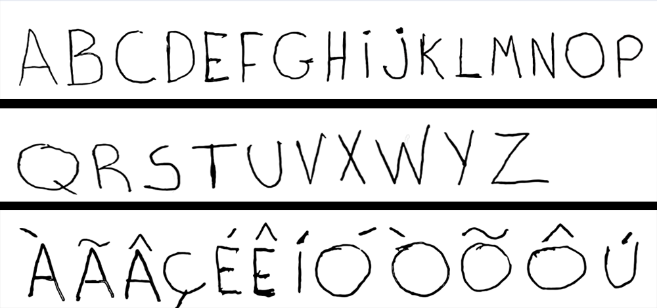 ABCDEFGHijKLMNOP
QRSTUVXWYZ
ÀÃÂÇÉÊÍÓÒÕÔÚ